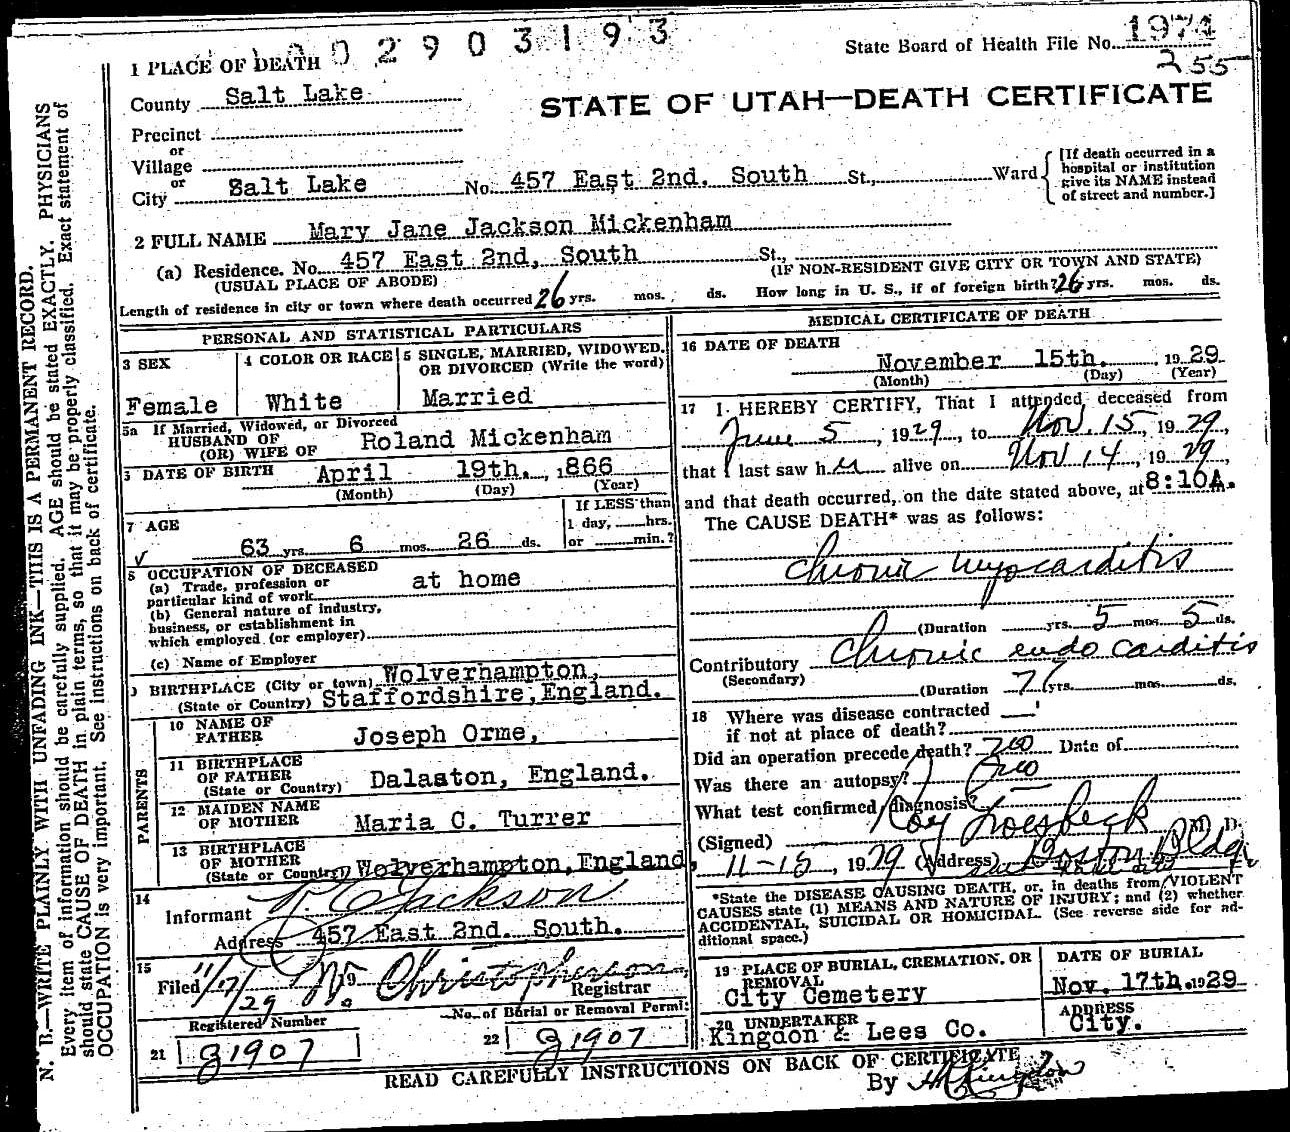 02903193
State Board of Health File No. 1974
255
1 PLACE OF DEATH
County Salt Lake
STATE OF UTAH—DEATH CERTIFICATE
Precinct
or
Village
or
City Salt Lake No. 457 East 2nd. South St., Ward
[If death occurred in a hospital or institution give its NAME instead of street and number.]
2 FULL NAME Mary Jane Jackson Mickenham
(a) Residence. No. 457 East 2nd, South St.,
(USUAL PLACE OF ABODE) (IF NON-RESIDENT GIVE CITY OR TOWN AND STATE)
Length of residence in city or town where death occurred 26 yrs. mos. ds. How long in U. S., if of foreign birth? 26 yrs. mos. ds.
PERSONAL AND STATISTICAL PARTICULARS
3 SEX
Female
4 COLOR OR RACE
White
5 SINGLE, MARRIED, WIDOWED, OR DIVORCED (Write the word)
Married
5a If Married, Widowed, or Divorced
HUSBAND OF
(OR) WIFE OF Roland Mickenham
DATE OF BIRTH April 19th, 1866
(Month) (Day) (Year)
7 AGE
63 yrs. 6 mos. 26 ds.
If LESS than
1 day, hrs.
or min.?
8 OCCUPATION OF DECEASED
(a) Trade, profession or
particular kind of work at home
(b) General nature of industry,
business, or establishment in
which employed (or employer)
(c) Name of Employer
BIRTHPLACE (City or town) Wolverhampton,
(State or Country) Staffordshire, England.
PARENTS
10 NAME OF
FATHER Joseph Orme,
11 BIRTHPLACE
OF FATHER
(State or Country) Dalaston, England.
12 MAIDEN NAME
OF MOTHER Maria C. Turrer
13 BIRTHPLACE
OF MOTHER
(State or Country) Wolverhampton, England
14
Informant Jackson
Address 457 East 2nd. South.
15
Filed 11/17/29 Wm Christopherson
Registrar
Registered Number
No. of Burial or Removal Permit
21 1907
22 1907
MEDICAL CERTIFICATE OF DEATH
16 DATE OF DEATH
November 15th. 1929
(Month) (Day) (Year)
17 I HEREBY CERTIFY, That I attended deceased from
June 5, 1929, to Nov. 15, 1929,
that I last saw her alive on Nov 14, 1929,
and that death occurred, on the date stated above, at 8:10A.
The CAUSE DEATH* was as follows:
Chronic myocarditis
(Duration yrs. 5 mos. 5 ds.
Contributory Chronic endocarditis
(Secondary)
(Duration yrs. mos. ds.
18 Where was disease contracted
if not at place of death?
Did an operation precede death? no Date of
Was there an autopsy? no
What test confirmed diagnosis?
(Signed) Roy Groesbeck M. D.
11-15, 1929 (Address) Boston Bldg
*State the DISEASE CAUSING DEATH, or, in deaths from VIOLENT
CAUSES state (1) MEANS AND NATURE OF INJURY; and (2) whether
ACCIDENTAL, SUICIDAL OR HOMICIDAL. (See reverse side for ad-
ditional space.)
19 PLACE OF BURIAL, CREMATION, OR
REMOVAL
City Cemetery
DATE OF BURIAL
Nov. 17th. 1929
20 UNDERTAKER
Kingdon & Lees Co.
ADDRESS
City.
READ CAREFULLY INSTRUCTIONS ON BACK OF CERTIFICATE
By Kingdon
N. B.—WRITE PLAINLY WITH UNFADING INK—THIS IS A PERMANENT RECORD.
Every item of information should be carefully supplied. AGE should be stated EXACTLY. PHYSICIANS
should state CAUSE OF DEATH in plain terms, so that it may be properly classified. Exact statement of
OCCUPATION is very important. See instructions on back of certificate.